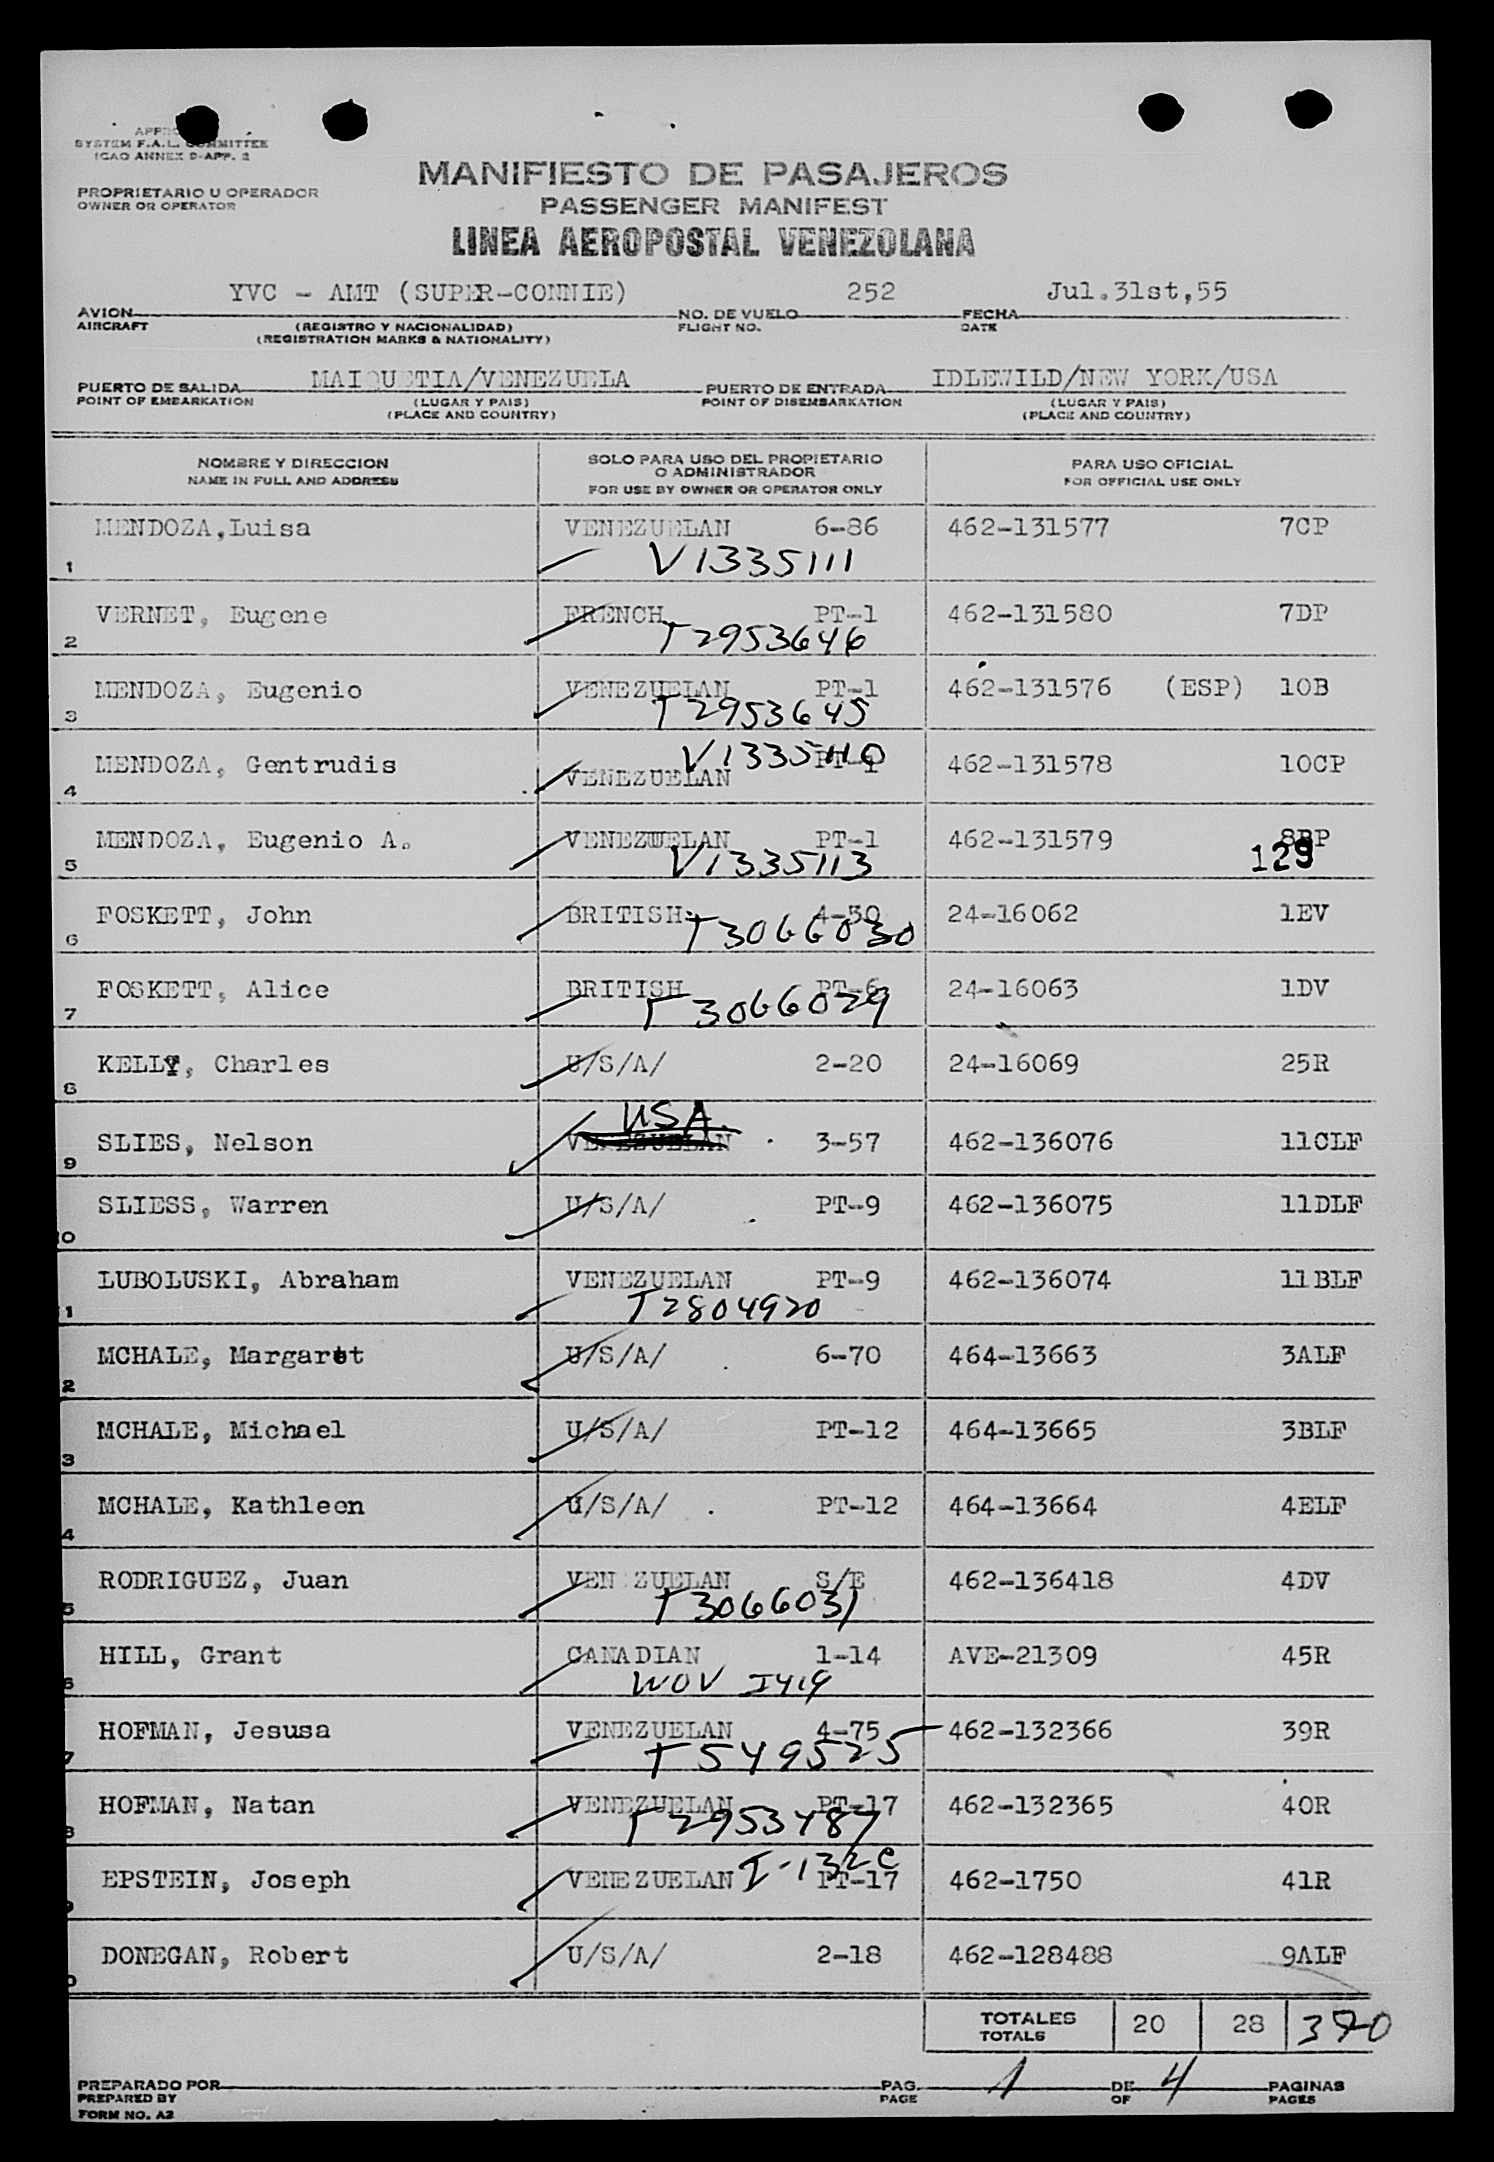 SYSTEM F.A.L. COMMITTEE
ICAO ANNEX 9-APP. 2
PROPRIETARIO U OPERADOR
OWNER OR OPERATOR
MANIFIESTO DE PASAJEROS
PASSENGER MANIFEST
LINEA AEROPOSTAL VENEZOLANA
AVION YVC - AMT (SUPER-CONNIE) NO. DE VUELO 252 FECHA Jul.31st,55
AIRCRAFT (REGISTRO Y NACIONALIDAD) FLIGHT NO. DATE
(REGISTRATION MARKS & NATIONALITY)
PUERTO DE SALIDA MAIQUETIA/VENEZUELA PUERTO DE ENTRADA IDLEWILD/NEW YORK/USA
POINT OF EMBARKATION (LUGAR Y PAIS) POINT OF DISEMBARKATION (LUGAR Y PAIS)
(PLACE AND COUNTRY) (PLACE AND COUNTRY)
NOMBRE Y DIRECCION SOLO PARA USO DEL PROPIETARIO O ADMINISTRADOR PARA USO OFICIAL
NAME IN FULL AND ADDRESS FOR USE BY OWNER OR OPERATOR ONLY FOR OFFICIAL USE ONLY
MENDOZA,Luisa VENEZUELAN 6-86 462-131577 7CP
1 V1335111
VERNET, Eugene FRENCH PT-1 462-131580 7DP
2 T2953646
MENDOZA, Eugenio VENEZUELAN PT-1 462-131576 (ESP) 10B
3 T2953645
V1335110
MENDOZA, Gentrudis VENEZUELAN PT-1 462-131578 10CP
4
MENDOZA, Eugenio A. VENEZUELAN PT-1 462-131579 8BP
5 V1335113 129
FOSKETT, John BRITISH 4-30 24-16062 1EV
6 T3066030
FOSKETT, Alice BRITISH PT-6 24-16063 1DV
7 T3066029
KELLY, Charles U/S/A/ 2-20 24-16069 25R
8
USA.
SLIES, Nelson VENEZUELAN 3-57 462-136076 11CLF
9
SLIESS, Warren U/S/A/ PT-9 462-136075 11DLF
0
LUBOLUSKI, Abraham VENEZUELAN PT-9 462-136074 11BLF
1 T2804920
MCHALE, Margaret U/S/A/ 6-70 464-13663 3ALF
2
MCHALE, Michael U/S/A/ PT-12 464-13665 3BLF
3
MCHALE, Kathleen U/S/A/ PT-12 464-13664 4ELF
4
RODRIGUEZ, Juan VENEZUELAN S/E 462-136418 4DV
5 T3066031
HILL, Grant CANADIAN 1-14 AVE-21309 45R
6 WOV I419
HOFMAN, Jesusa VENEZUELAN 4-75 462-132366 39R
7 T549525
HOFMAN, Natan VENEZUELAN PT-17 462-132365 40R
8 T2953487
I-132c
EPSTEIN, Joseph VENEZUELAN PT-17 462-1750 41R
9
DONEGAN, Robert U/S/A/ 2-18 462-128488 9ALF
0
TOTALES 20 28 370
TOTALS
PREPARADO POR PAG. 1 DE 4 PAGINAS
PREPARED BY PAGE OF PAGES
FORM NO. A2